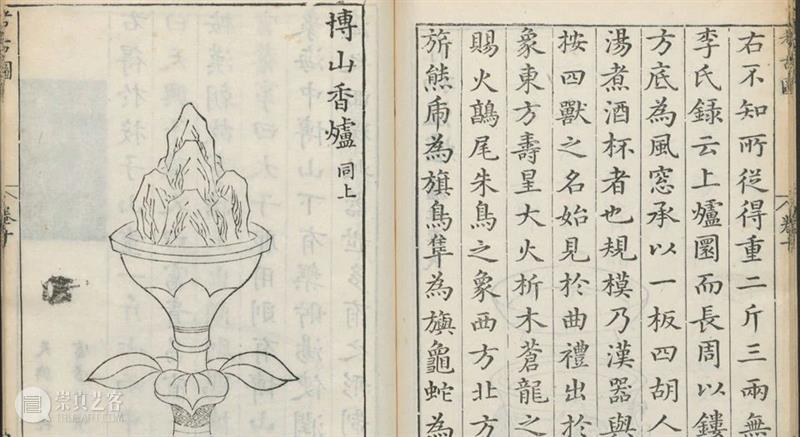 考古圖
卷十
右不知所從得重二斤三兩無
李氏録云上爐圜而長周以鏤
方底為風窓承以一板四胡人
湯煮酒杯者也規模乃漢器與
按四獸之名始見於曲禮出於
象東方壽星大火析木蒼龍之
賜火鶉尾朱鳥之象西方北方
旂熊虎為旗鳥隼為旟龜蛇為
博山香爐 同上
考古圖
卷十
崇真艺客